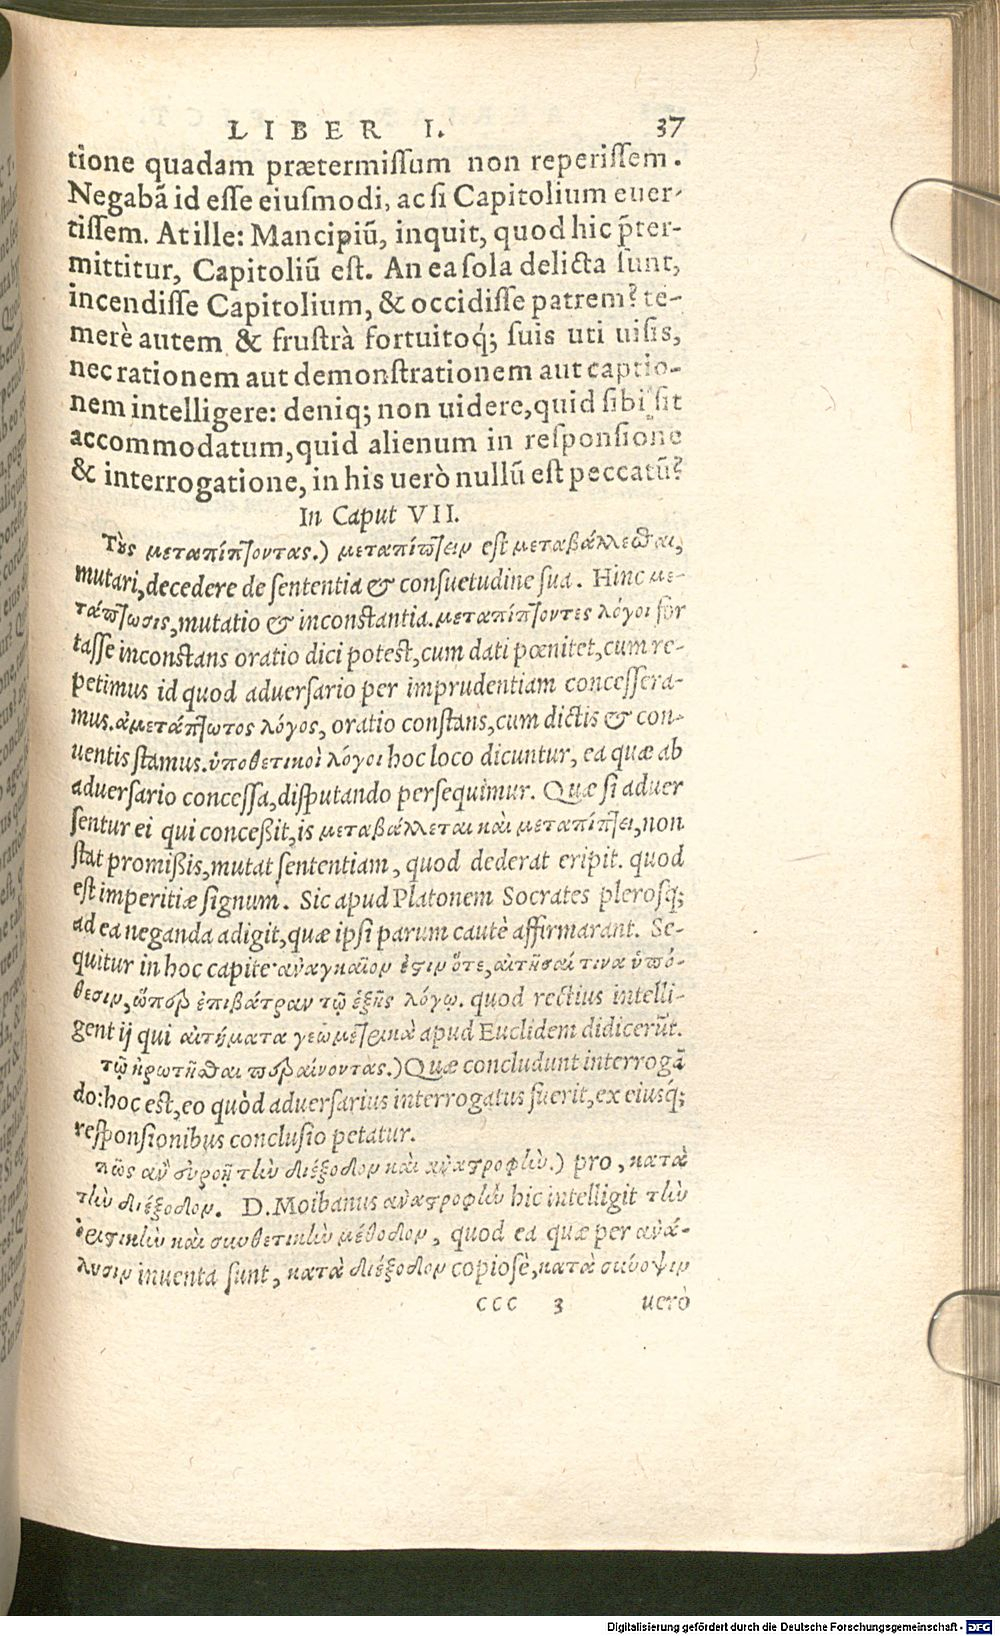 LIBER I. 37
tione quadam prætermissum non reperissem.
Negabã id esse eiusmodi, ac si Capitolium euer-
tissem. At ille: Mancipiũ, inquit, quod hic p̃ter-
mittitur, Capitoliũ est. An ea sola delicta sunt,
incendisse Capitolium, & occidisse patrem? te-
merè autem & frustrà fortuitoq́; suis uti uisis,
nec rationem aut demonstrationem aut captio-
nem intelligere: deniq; non uidere, quid sibi sit
accommodatum, quid alienum in responsione
& interrogatione, in his uerò nullũ est peccatũ?
In Caput VII.
Τοὺς μεταπίπτοντας.) μεταπίπτειν est μεταβάλλεσθαι,
mutari, decedere de sententia & consuetudine sua. Hinc με-
τάπτωσις, mutatio & inconstantia. μεταπίπτοντες λόγοι for
tasse inconstans oratio dici potest, cum dati pœnitet, cum re-
petimus id quod aduersario per imprudentiam concessera-
mus. ἀμετάπτωτος λόγος, oratio constans, cum dictis & con-
uentis stamus. ὑποθετικοὶ λόγοι hoc loco dicuntur, ea quæ ab
aduersario concessa, disputando persequimur. Quæ si aduer
sentur ei qui concessit, is μεταβάλλεται καὶ μεταπίπτει, non
stat promissis, mutat sententiam, quod dederat eripit. quod
est imperitiæ signum. Sic apud Platonem Socrates plerosq;
ad ea neganda adigit, quæ ipsi parum cautè affirmarant. Se-
quitur in hoc capite· ἀναγκαῖον ἐστιν ὅτε, αἰτῆσαί τινα ὑπό-
θεσιν, ὥσπερ ἐπιβάθραν τῷ ἑξῆς λόγῳ. quod rectius intelli-
gent ij qui αἰτήματα γεωμετρικὰ apud Euclidem didicerũt.
τῷ ἠρωτῆσθαι περαίνοντας.) Quæ concludunt interrogã
do: hoc est, eo quòd aduersarius interrogatus fuerit, ex eiusq́;
responsionibus conclusio petatur.
πῶς ἂν τὴν διέξοδον καὶ ἀναστροφὴν.) pro, κατὰ
τὴν διέξοδον. D. Moibanus ἀναστροφὴν hic intelligit τὴν
ὁριστικὴν καὶ συνθετικὴν μέθοδον, quod ea quæ per ἀνά-
λυσιν inuenta sunt, κατὰ διέξοδον copiosè, κατὰ σύνοψιν
CCC 3 uerò
Digitalisierung gefördert durch die Deutsche Forschungsgemeinschaft - DFG